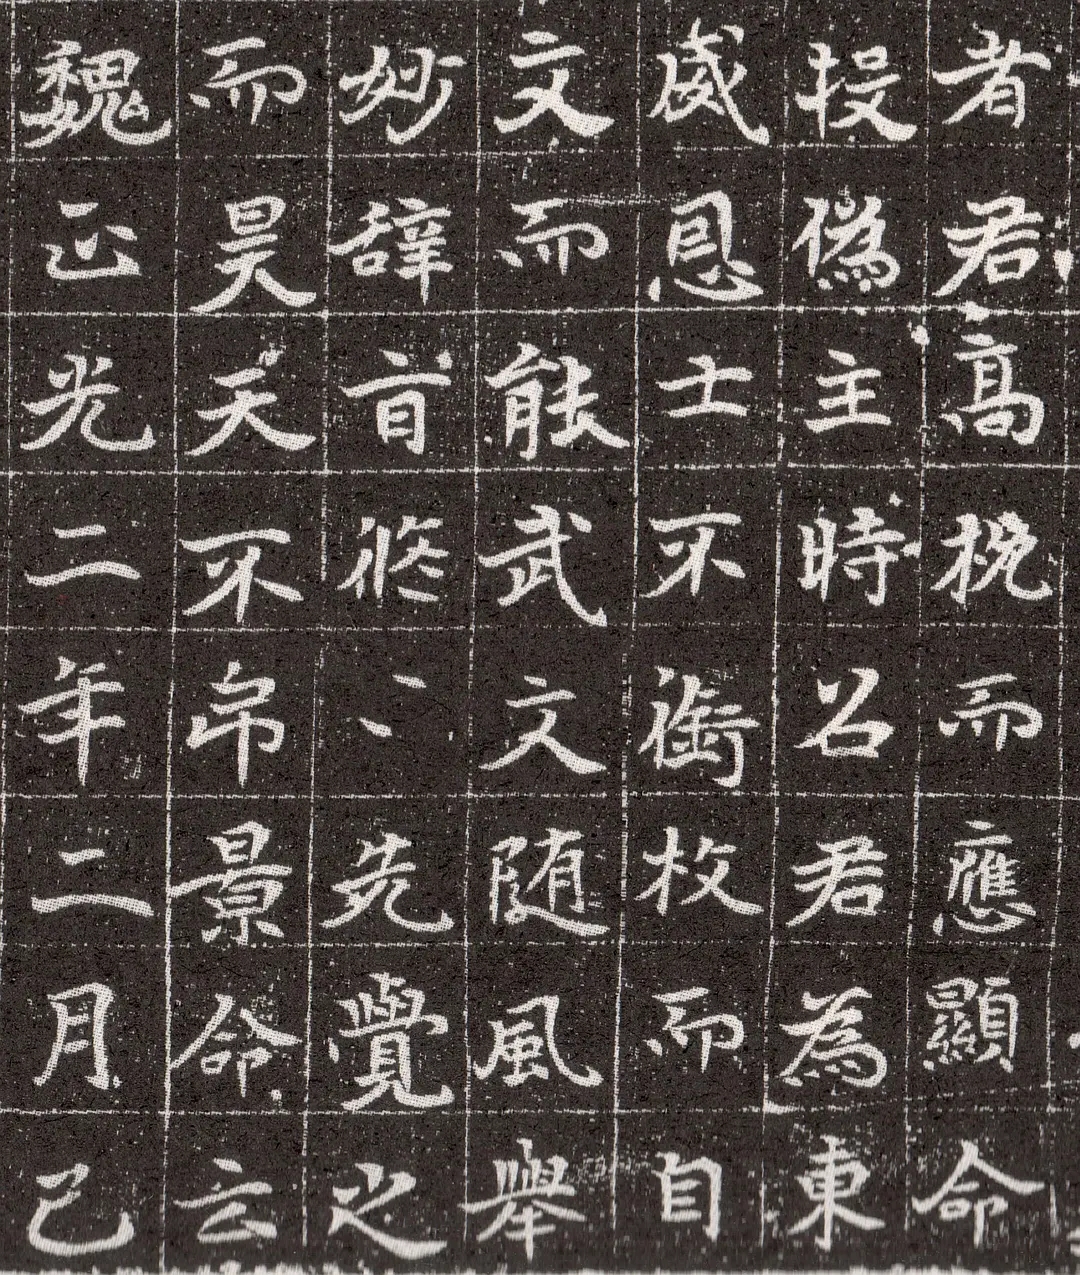 者君高挽而應顯命
投偽主時召君為東
威恩士不銜枚而自
文而能武文随風舉
妙辞旨修〻先覺之
而昊天不吊景命云
魏正光二年二月己